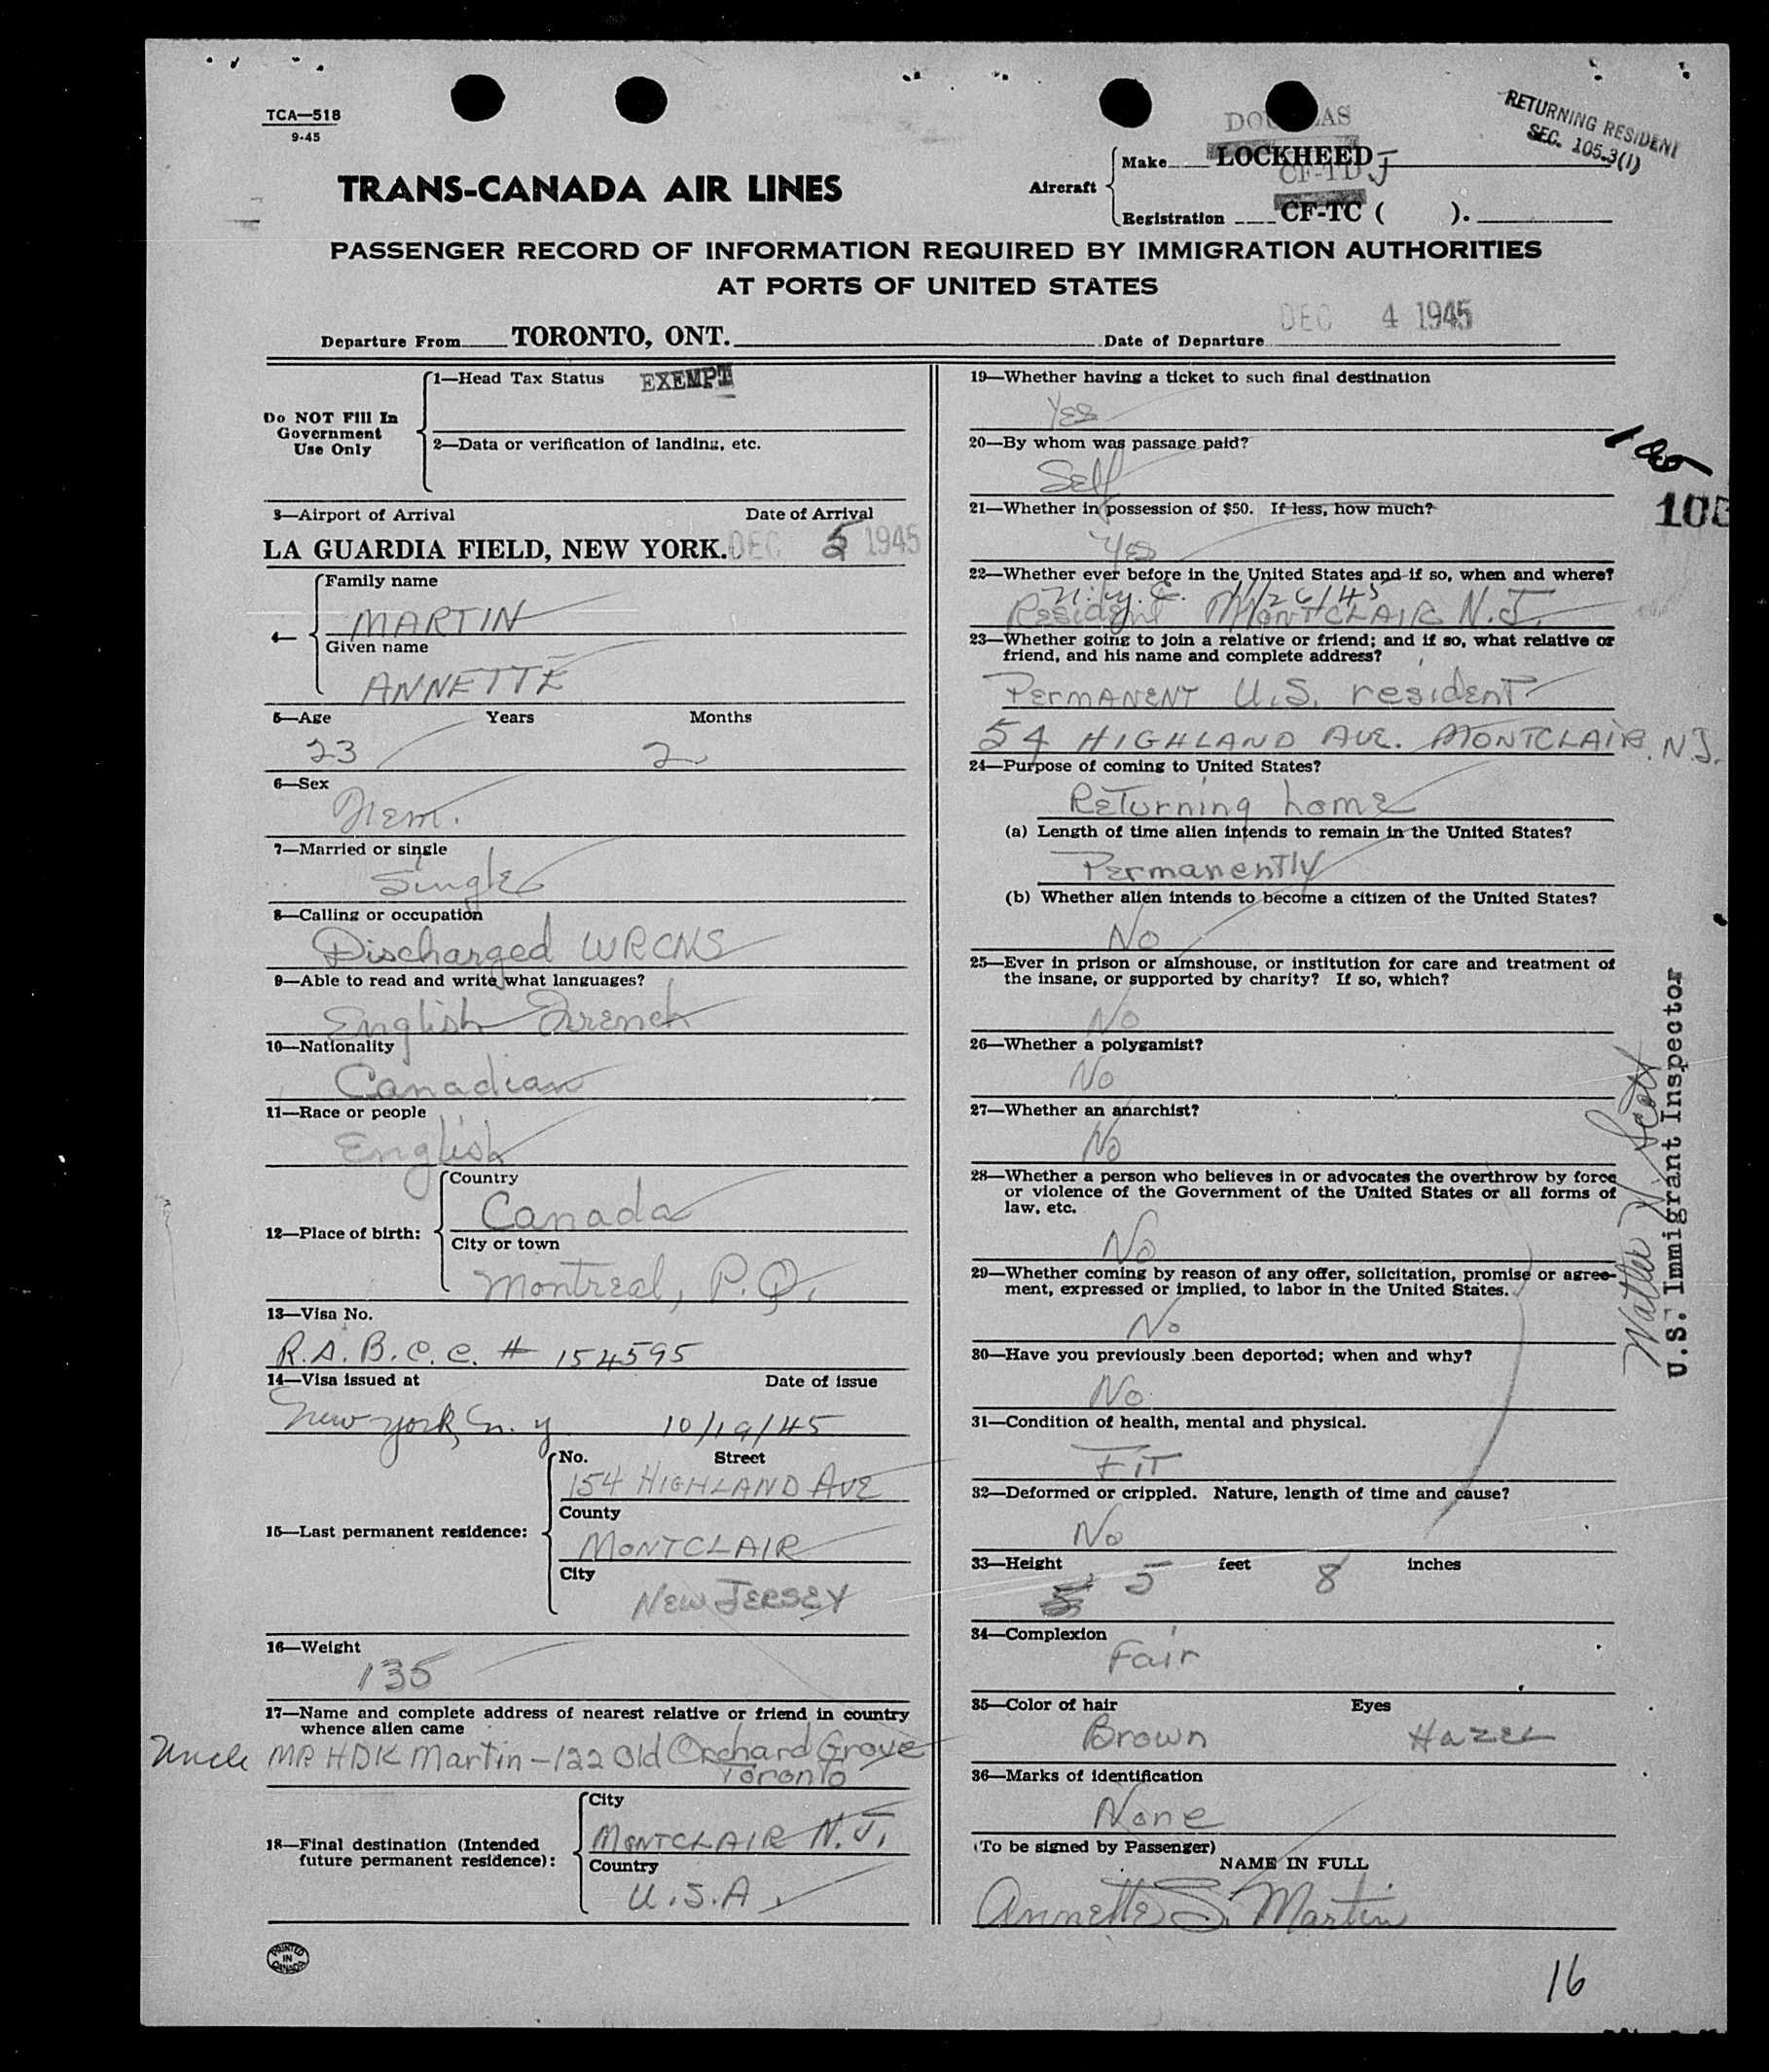 TCA—518
9-45
RETURNING RESIDENT
SEC. 105.3(1)
TRANS-CANADA AIR LINES
Aircraft
DOUGLAS
Make LOCKHEED
CF-TD J
Registration CF-TC ( ).
PASSENGER RECORD OF INFORMATION REQUIRED BY IMMIGRATION AUTHORITIES
AT PORTS OF UNITED STATES
Departure From TORONTO, ONT. Date of Departure DEC 4 1945
Do NOT Fill In
Government
Use Only
1—Head Tax Status EXEMPT
2—Data or verification of landing, etc.
3—Airport of Arrival Date of Arrival
LA GUARDIA FIELD, NEW YORK. DEC 5 1945
4—
Family name
MARTIN
Given name
ANNETTE
5—Age Years Months
23 2
6—Sex
Fem.
7—Married or single
Single
8—Calling or occupation
Discharged WRCNS
9—Able to read and write what languages?
English French
10—Nationality
Canadian
11—Race or people
English
12—Place of birth:
Country
Canada
City or town
Montreal, P.Q.
13—Visa No.
R.A.B.C.C. # 154595
14—Visa issued at Date of issue
New York, N.Y 10/19/45
15—Last permanent residence:
No. Street
154 HIGHLAND AVE
County
MONTCLAIR
City
NEW JERSEY
16—Weight
135
17—Name and complete address of nearest relative or friend in country
whence alien came
Uncle MR HDK Martin – 122 Old Orchard Grove
Toronto
18—Final destination (Intended
future permanent residence):
City
MONTCLAIR N.J.
Country
U.S.A.
PRINTED
IN
CANADA
19—Whether having a ticket to such final destination
Yes
20—By whom was passage paid?
Self
21—Whether in possession of $50. If less, how much?
Yes
22—Whether ever before in the United States and if so, when and where?
N.Y.C. 11/26/45
Resident MONTCLAIR N.J.
23—Whether going to join a relative or friend; and if so, what relative or
friend, and his name and complete address?
PERMANENT U.S. resident
54 HIGHLAND AVE. MONTCLAIR. N.J.
24—Purpose of coming to United States?
Returning home
(a) Length of time alien intends to remain in the United States?
Permanently
(b) Whether alien intends to become a citizen of the United States?
No
25—Ever in prison or almshouse, or institution for care and treatment of
the insane, or supported by charity? If so, which?
No
26—Whether a polygamist?
No
27—Whether an anarchist?
No
28—Whether a person who believes in or advocates the overthrow by force
or violence of the Government of the United States or all forms of
law, etc.
No
29—Whether coming by reason of any offer, solicitation, promise or agree-
ment, expressed or implied, to labor in the United States.
No
30—Have you previously been deported; when and why?
No
31—Condition of health, mental and physical.
FIT
32—Deformed or crippled. Nature, length of time and cause?
No
33—Height 5 feet 8 inches
34—Complexion
Fair
35—Color of hair Eyes
Brown Hazel
36—Marks of identification
None
(To be signed by Passenger)
NAME IN FULL
Annette S. Martin
16
105
Walter W. Scott
U.S. Immigrant Inspector